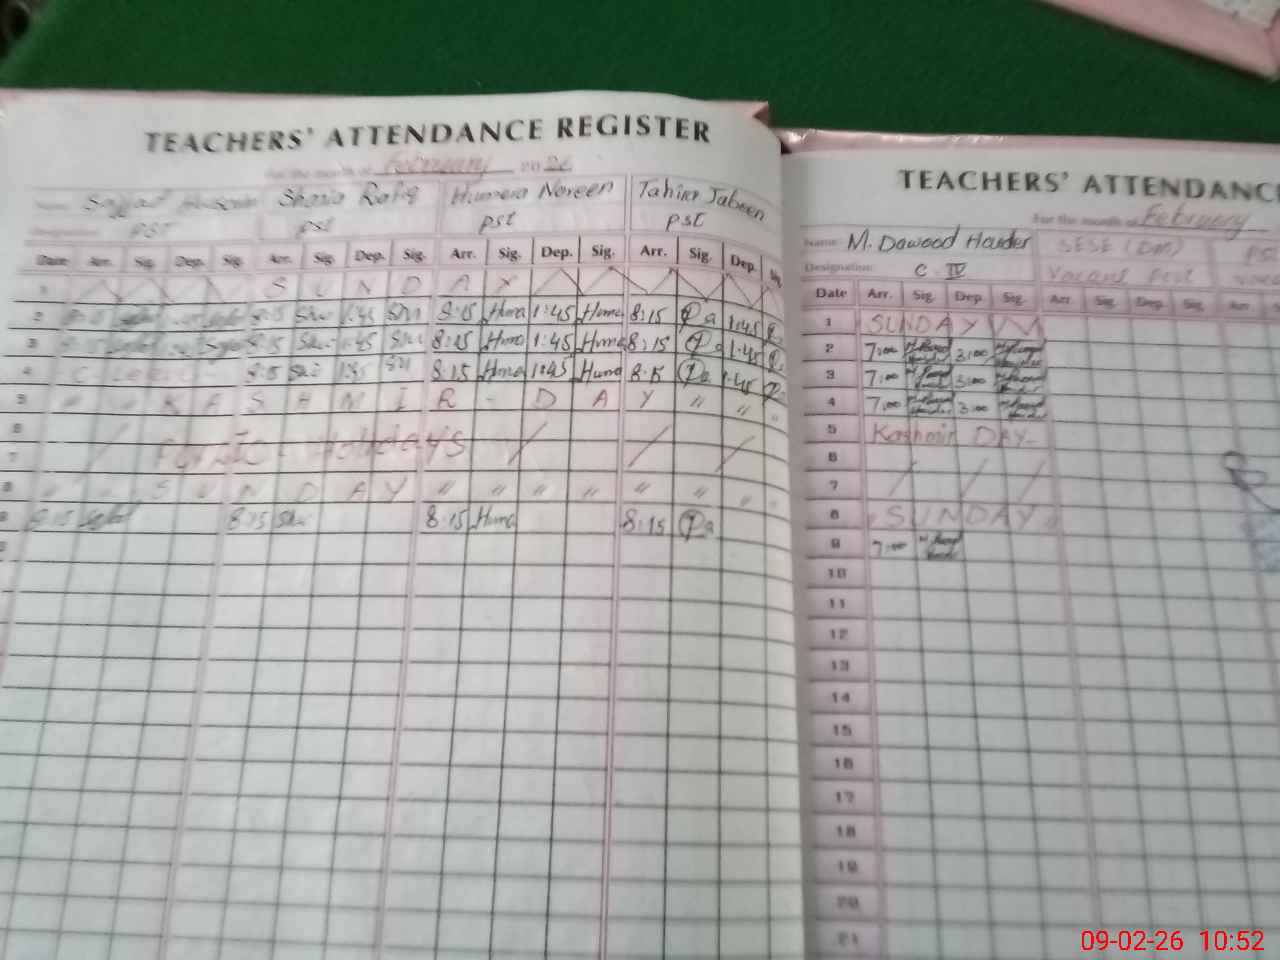 TEACHERS' ATTENDANCE REGISTER
For the month of February 2026
Name: Sajjad Hussain Sharia Rafiq Humera Noreen Tahira Jabeen
Designation: PST pst pst pst
Date Arr. Sig. Dep. Sig. Arr. Sig. Dep. Sig. Arr. Sig. Dep. Sig. Arr. Sig. Dep. Sig.
1 S U N D A Y
2 8:15 1:45 8:15 Sha 1:45 8:15 Huma 1:45 Huma 8:15 1:45
3 8:15 8:15 Sha 1:45 8:15 Huma 1:45 Huma 8:15 1:45
4 C Leave 8:15 8:15 Huma 1:45 Huma 8:15 1:45
5 " " K A S H M I R - D A Y " " "
6
7 Holidays
8 " " S U N D A Y " " " " " " "
9 8:15 8:15 Sha 8:15 Huma 8:15
TEACHERS' ATTENDANC
For the month of February
Name: M. Dawood Haider SESE (DM) PS
Designation: C IV Vacant Post
Date Arr. Sig. Dep. Sig. Arr. Sig. Dep. Sig. Arr
1 SUNDAY
2 7:00 3:00
3 7:00 3:00
4 7:00 3:00
5 Kashmir DAY-
6
7
8 " SUNDAY "
9 7:00
10
11
12
13
14
15
16
17
18
19
20
21
09-02-26 10:52